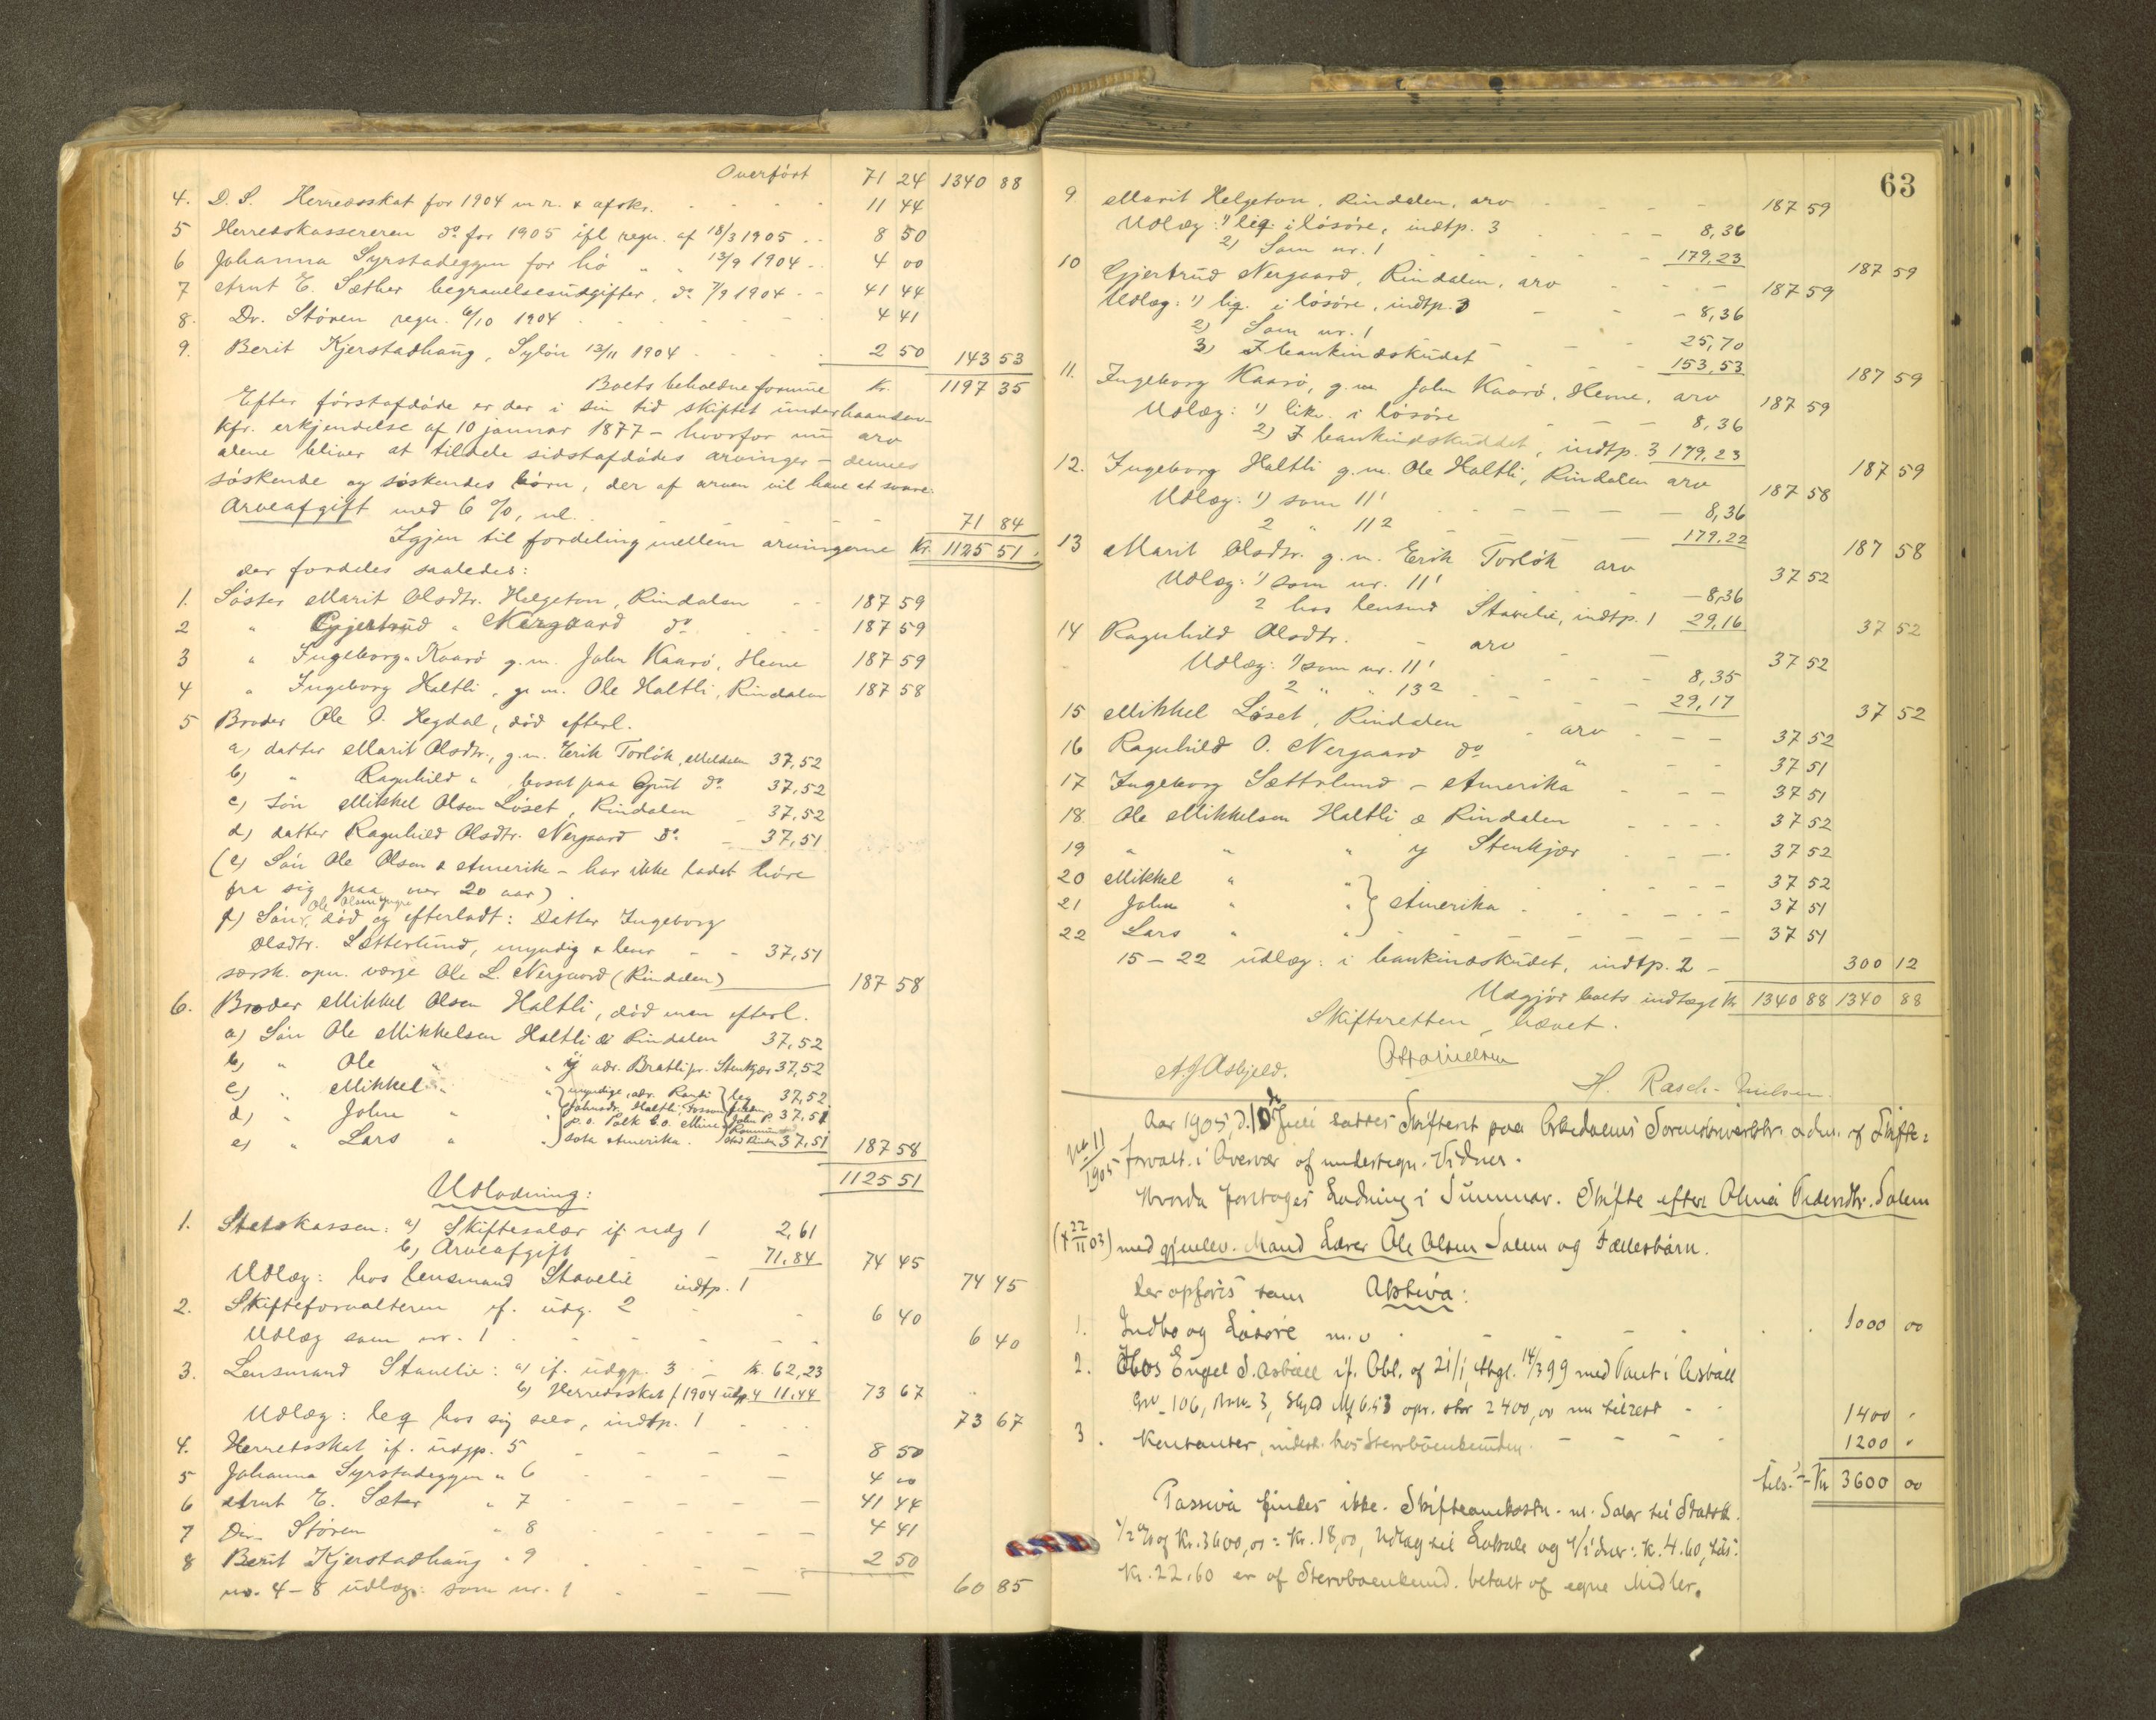 Overført 71 24 1340 88
4. D. S. Herredsskat for 1904 m r. & afskr. 11 44
5 Herredskassereren do for 1905 ifl regn. af 18/3 1905 8 50
6 Johanna Syrstadeggen for hø " " 13/9 1904 4 00
7 Arnt E. Sæther begravelsesudgifter, do 7/9 1904 41 44
8. Dr. Støren regn. 6/10 1904 4 41
9. Berit Kjerstadhaug, Syløn 13/11 1904 2 50 143 53
Boets beholdne formue Kr. 1197 35
Efter førstafdøde er der i sin tid skiftet underhaanden
kfr. erkjendelse af 10 januar 1877 – hvorfor nu arv
alene bliver at tildele sidstafdødes arvinger – dennes
søskende og søskendes børn, der af arven vil have at svare
Arveafgift med 6 %, nl. 71 84
Igjen til fordeling mellem arvingerne Kr. 1125 51
der fordeles saaledes:
1. Søster Marit Olsdtr. Helgeton, Rindalen 187 59
2 " Gjertrud " Nergaard do 187 59
3 " Ingeborg " Kaarø g.m. John Kaarø, Hevne 187 59
4 " Ingeborg Haltli, g. m. Ole Haltli, Rindalen 187 58
5 Broder Ole O. Hegdal, død efterl.
a) datter Marit Olsdtr., g.m. Erik Torløk, Meldalen 37,52
b) " Ragnhild " , bosat paa Grut do 37,52
c) søn Mikkel Olsen Løset, Rindalen 37,52
d) datter Ragnhild Olsdtr. Nergaard do 37,51
(e) Søn Ole Olsen æ Amerika – har ikke ladet høre
fra sig paa over 20 aar)
f) Søn Ole Olsen yngre, død og efterladt: Datter Ingeborg
Olsdtr. Sætterlund, umyndig 37,51
særsk. opn. værge Ole L. Nergaard (Rindalen) 187 58
6. Broder Mikkel Olsen Haltli, død men efterl.
a) Søn Ole Mikkelsen Haltli æ Rindalen 37,52
b) " Ole " " y adr. Bratli pr. Stenkjær 37,52
c) " Mikkel " " umyndige, adr. Randi 37,52
d) " John " " Johnsdr. Haltli, Fosson 37,51
P.O. Polk C.o. Minne
e) " Lars " " sota Amerika. 37,51 187 58
1125 51
Udlodning:
1. Statskassen: a) Skiftesalær if. udg 1 2,61
b) Arveafgift 71.84 74 45
Udlæg: hos lensmand Stavelie indtp. 1 74 45
2. Skifteforvalteren if. udg. 2 6 40
Udlæg som nr. 1 6 40
3. Lensmand Stavelie: a) if. udgp. 3 Kr. 62,23
b) Herredsskat f 1904 udgp 4 11.44 73 67
Udlæg: leg hos sig selv, indtp. 1 73 67
4. Herredsskat if. udgp. 5 8 50
5 Johanna Syrstadeggen " 6 4 00
6 Arnt E. Sæter " 7 41 44
7 Dr. Støren " 8 4 41
8 Berit Kjerstadhaug " 9 2 50
nr. 4–8 udlæg: som nr. 1 60 85
63
9 Marit Helgeton, Rindalen, arv 187 59
Udlæg: 1) lig. i løsøre, indtp. 3 8,36
2) Som nr. 1 179,23 187 59
10 Gjertrud Nergaard, Rindalen, arv 187 59
Udlæg: 1) lig. i løsøre, indtp. 3 8,36
2) Som nr. 1 25,70
3) I bankindskudet 153,53 187 59
11. Ingeborg Kaarø, g.m. John Kaarø, Hevne, arv 187 59
Udlæg: 1) likv. i løsøre 8,36
2) I bankindskuddet, indtp. 3 179,23 187 59
12. Ingeborg Haltli g.m. Ole Haltli, Rindalen arv 187 58
Udlæg: 1) som 11 1 8,36
2 " 11 2 179,22 187 58
13 Marit Olsdtr. g.m. Erik Torløk arv 37 52
Udlæg: 1) som nr. 11 1 8,36
2 hos lensmd Stavelie, indtp. 1 29,16 37 52
14 Ragnhild Olsdtr. arv 37 52
Udlæg: 1) som nr. 11 1 8,35
2 " " 13 2 29,17 37 52
15 Mikkel Løset, Rindalen arv 37 52
16 Ragnhild O. Nergaard do " 37 51
17 Ingeborg Sætterlund – Amerika 37 51
18 Ole Mikkelsen Haltli æ Rindalen 37 52
19 " " " y Stenkjær 37 52
20 Mikkel " " 37 52
21 John " " } Amerika 37 51
22 Lars " " 37 51
15–22 udlæg: i bankindskudet, indtp. 2 300 12
Udgjør boets indtægt Kr. 1340 88 1340 88
Skifteretten hævet.
Otto Nielsen
A J Asbjeld. H. Rasch-Nielsen
Aar 1905, d. 10de Juli sattes Skifteret paa Orkedalens Sorenskriverktr. adm. af Skifte=
No 11/1905 forvalt. i Overvær af undertegn. Vidner.
Hvorda foretoges Lodning i Summar. Skifte efter Pedersdtr. Solem
(† 22/11 03) med gjenlev. Mand Lærer Ole Olsen Solem og Fællesbørn.
Der opføris som Aktiva:
1. Indbo og Løsøre m.v 1000 00
2. Hos Engel S. Asbøll if. Obl. af 21/1, thgl. 14/3 99 med Pant i Asbøll
Gno 106, Bno 3, Skyld Mk 6.53 opr. stor 2400,00 nu tilrest 1400 "
3. Kontanter, indest. hos Stervboenkemden. 1200 "
tils. Kr 3600 00
Passiva findes ikke. Skifteomkostn. nl. Salær til Statsk.
1/2 % af Kr. 3600,00 = Kr. 18,00, Udlæg til Lokale og Vidner: K. 4.60, tils:
Kr. 22.60 er af Stervboenkemd. betalt af egne Midler.